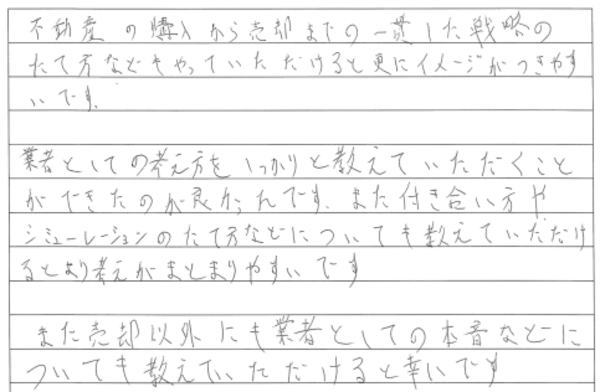 不動産の購入から売却までの一貫した戦略の
たて方などもやっていただけると更にイメージがつきやす
いです。
業者としての考え方をしっかりと教えていただくこと
ができたのが良かったです。また付き合い方や
シミュレーションのたて方などについても教えていただけ
るとより考えがまとまりやすいです
また売却以外にも業者としての本音などに
ついても教えていただけると幸いです